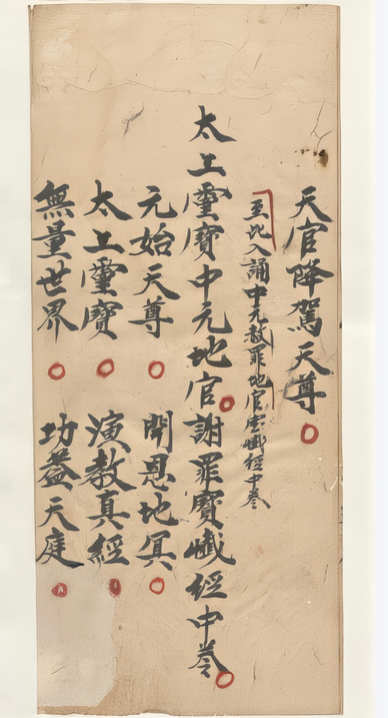 天官降駕天尊
至此入誦中元赦罪地官宝懴經中卷
太上霊寶中元地官謝罪寳懴經中卷
元始天尊 開恩地冥
太上霊寶 演教真經
無量世界 功益天庭